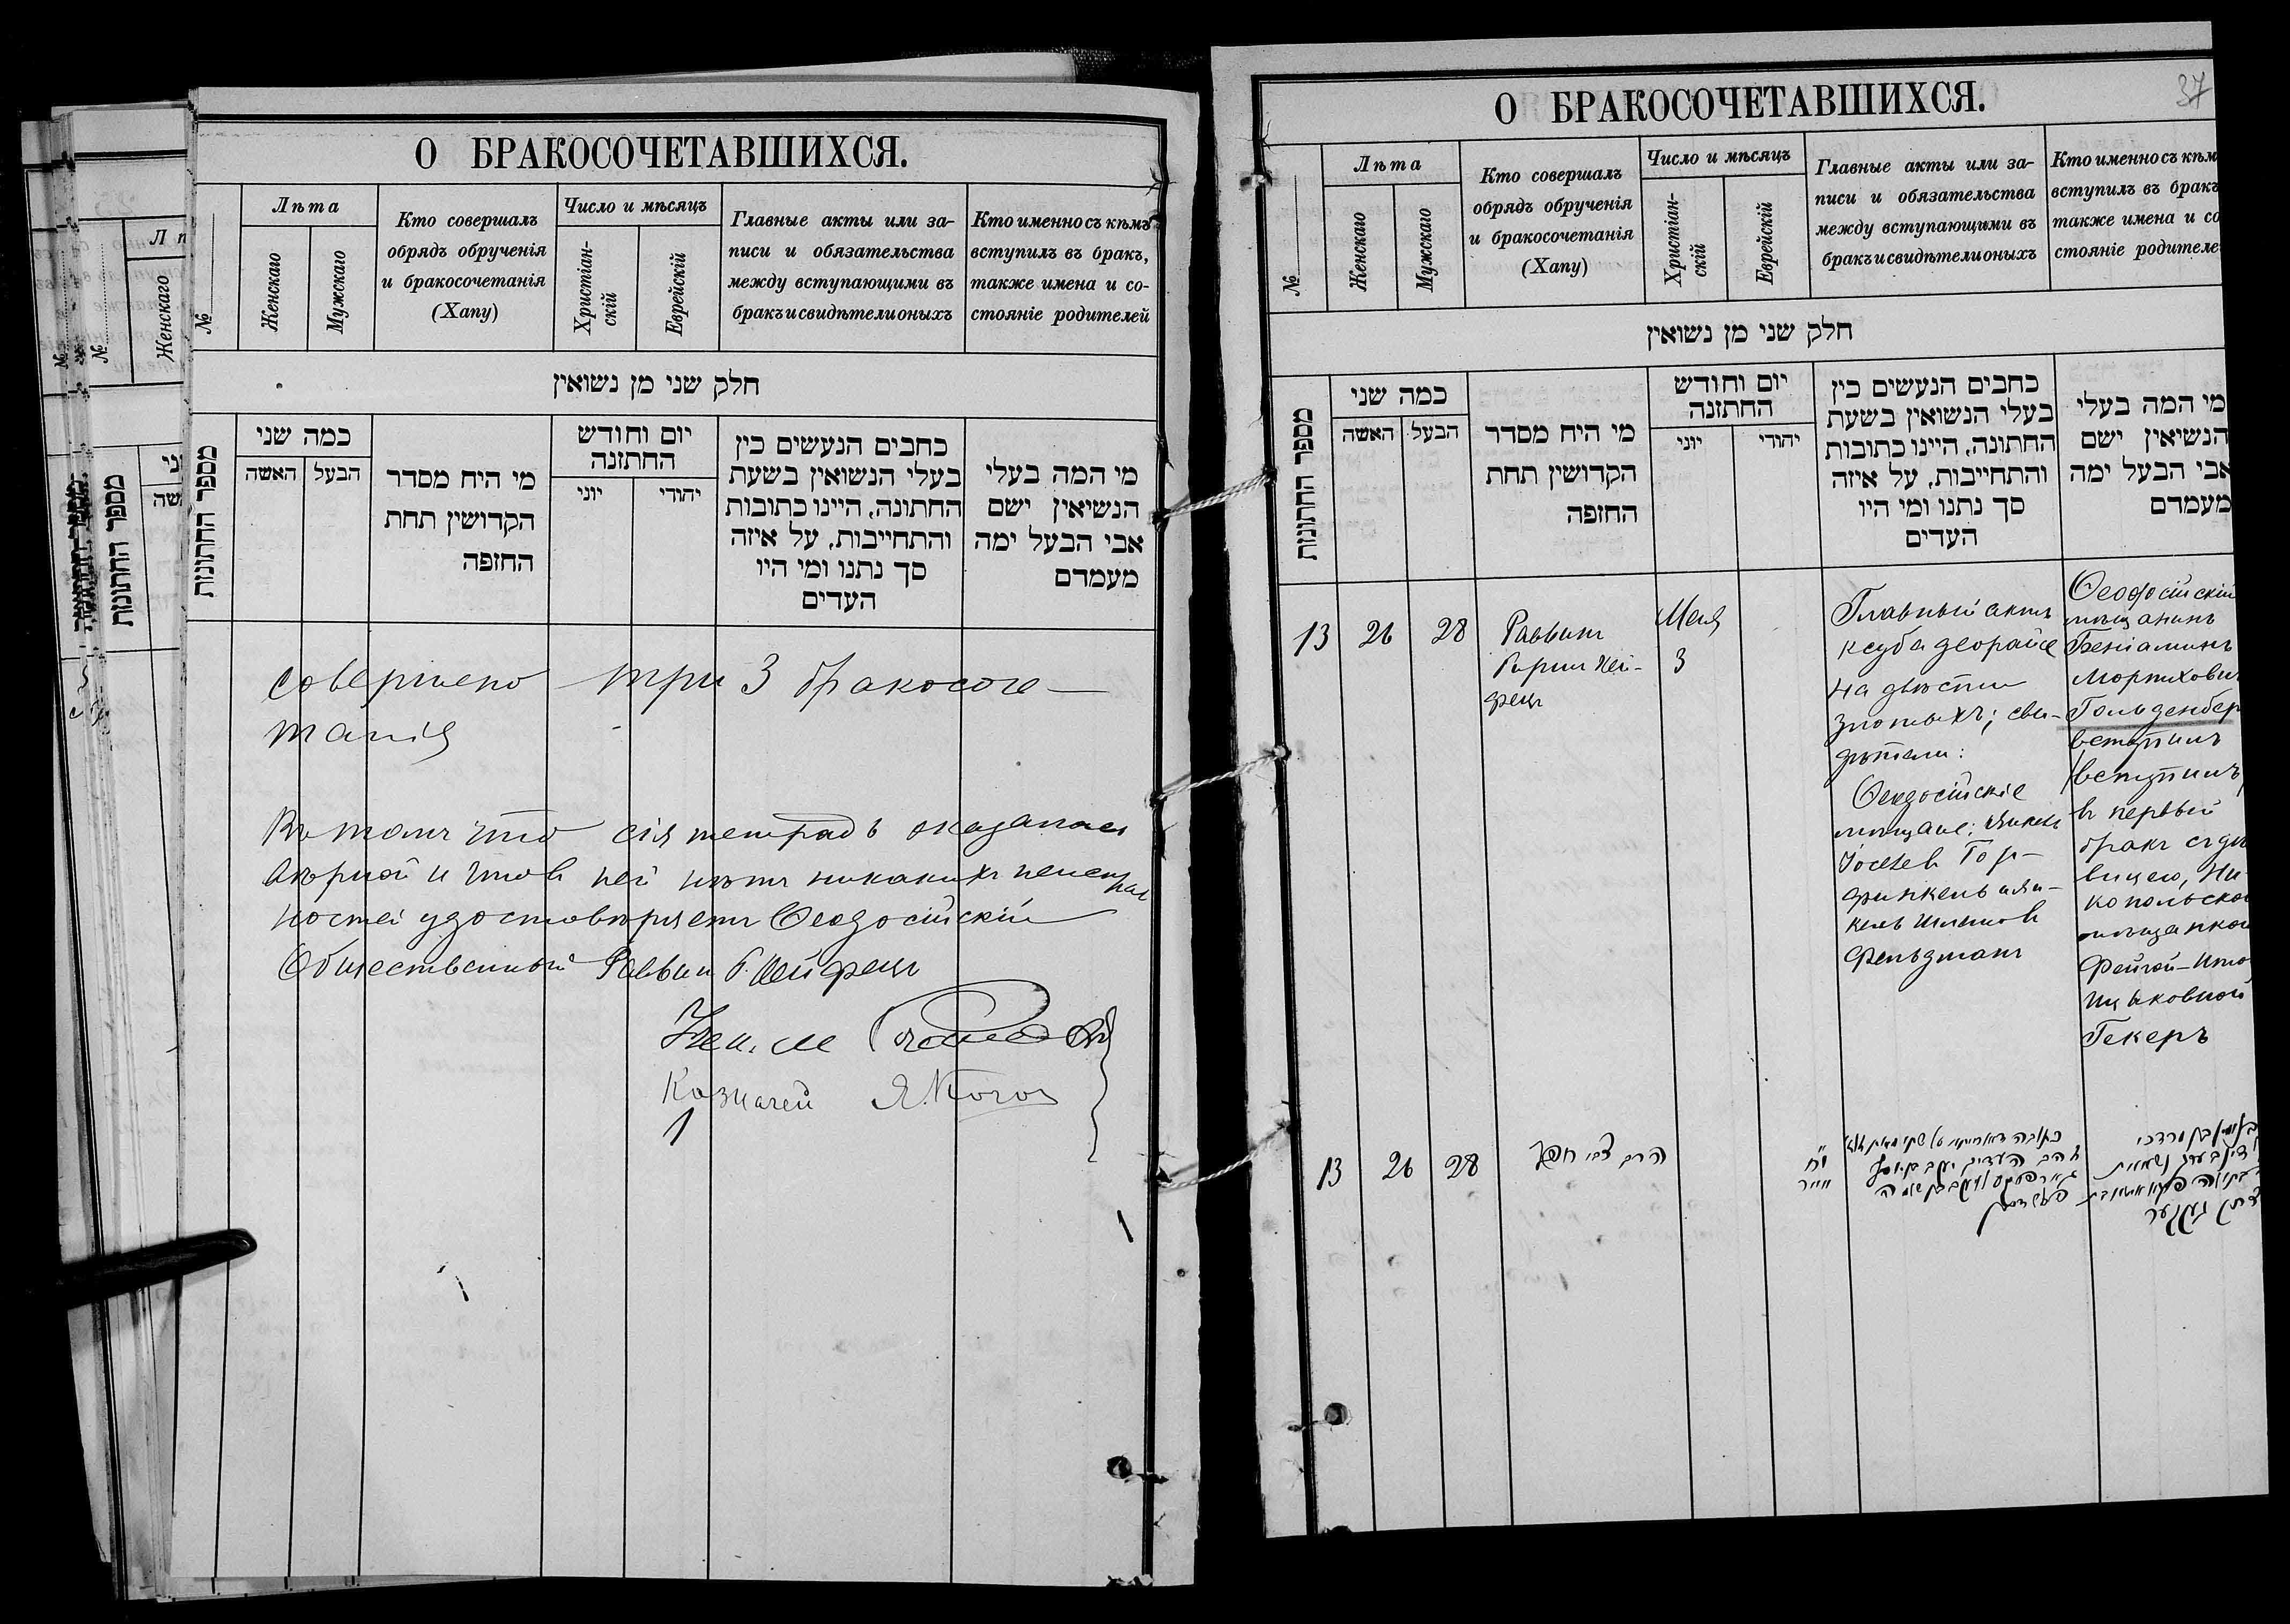 О БРАКОСОЧЕТАВШИХСЯ.
№
Лѣта
Женскаго
Мужскаго
Кто совершалъ
обрядъ обрученія
и бракосочетанія
(Хапу)
Число и мѣсяцъ
Христіан-
скій
Еврейскій
Главные акты или за-
писи и обязательства
между вступающими въ
бракъ и свидѣтели оныхъ
Кто именно съ кѣмъ
вступилъ въ бракъ,
также имена и со-
стояніе родителей
חלק שני מן נשואין
מספר החתונות
כמה שני
האשה
הבעל
מי היח מסדר
הקדושין תחת
החזפה
יום וחודש
החתזנה
יוני
יהודי
כחבים הנעשים כין
בעלי הנשואין בשעת
החתונה, היינו כתובות
והתחייבות, על איזה
סך נתנו ומי היו
העדים
מי המה בעלי
הנשיאין ישם
אבי הבעל ימה
מעמדם
совершено три 3 бракосоче-
танія
Въ томъ что сія тетрадь оказалась
вѣрной и что въ ней нѣтъ никакихъ
ностей удостовѣряетъ Ѳеодосійскій
Общественный Раввинъ Г. Хейфецъ
Казначей
О БРАКОСОЧЕТАВШИХСЯ.
37
№
Лѣта
Женскаго
Мужскаго
Кто совершалъ
обрядъ обрученія
и бракосочетанія
(Хапу)
Число и мѣсяцъ
Христіан-
скій
Еврейскій
Главные акты или за-
писи и обязательства
между вступающими въ
бракъ и свидѣтели оныхъ
Кто именно съ кѣм
вступилъ въ бракъ
также имена и со
стояніе родителе
חלק שני מן נשואין
מספר החתונות
כמה שני
האשה
הבעל
מי היח מסדר
הקדושין תחת
החזפה
יום וחודש
החתזנה
יוני
יהודי
כחבים הנעשים כין
בעלי הנשואין בשעת
החתונה, היינו כתובות
והתחייבות, על איזה
סך נתנו ומי היו
העדים
מי המה בעלי
הנשיאין ישם
אבי הבעל ימה
מעמדם
13 26 28
Раввинъ
Гиршъ Хей-
фецъ
Мая
3
Главный актъ
ксуба деорайсе
на двѣсти
злотыхъ; сви-
дѣтели:
Ѳеодосійскіе
мѣщане: Янкель
Іосевъ Гор-
финкель и Ян-
кель
Фельдманъ
Ѳеодосійскій
мѣщанинъ
Беніаминъ
Мортхович
Гольденбер
вступилъ
(вступилъ)
въ первый
бракъ съ дѣ
вицею, Ни-
копольской
мѣщанкой
Фейгой-Ито
Ицковной
Гекеръ
13 26 28
הרב צבי חפץ